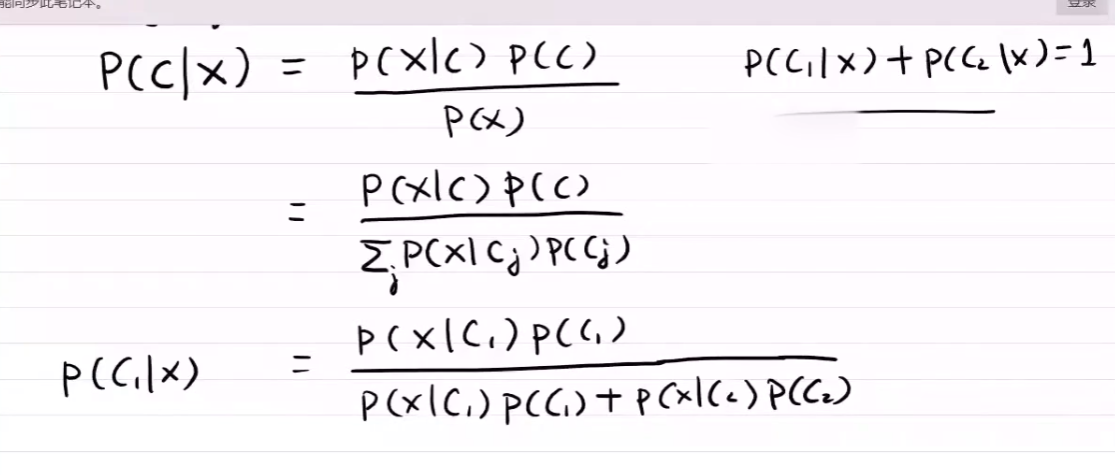 能同步此笔记本。 登录
P(C|X) = P(X|C) P(C) / P(X)    P(C₁|X) + P(C₂|X) = 1
= P(X|C) P(C) / Σⱼ P(X|Cⱼ) P(Cⱼ)
P(C₁|X) = P(X|C₁) P(C₁) / P(X|C₁) P(C₁) + P(X|C₂) P(C₂)